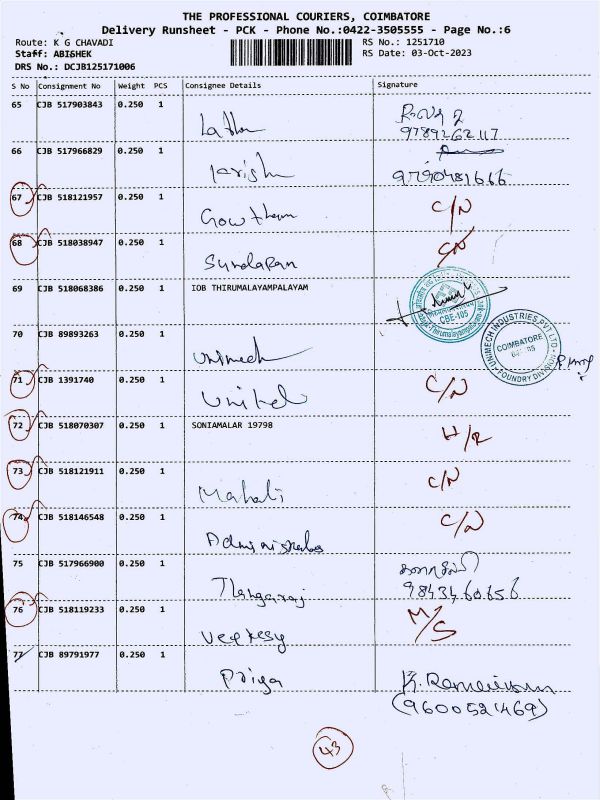 THE PROFESSIONAL COURIERS, COIMBATORE
Delivery Runsheet - PCK - Phone No.:0422-3505555 - Page No.:6
Route: K G CHAVADI
RS No.: 1251710
Staff: ABISHEK
RS Date: 03-Oct-2023
DRS No.: DCJB125171006
S No Consignment No Weight PCS Consignee Details Signature
65 CJB 517903843 0.250 1
9789262117
66 CJB 517966829 0.250 1
9790481666
67 CJB 518121957 0.250 1 Gowtham C/N
68 CJB 518038947 0.250 1 Sundaran C/N
69 CJB 518068386 0.250 1 IOB THIRUMALAYAMPALAYAM
CBE-105
70 CJB 89893263 0.250 1 Unimech
UNIMECH INDUSTRIES PVT LTD
COIMBATORE
FOUNDRY DIVISION
71 CJB 1391740 0.250 1 C/N
72 CJB 518070307 0.250 1 SONIAMALAR 19798 H/R
73 CJB 518121911 0.250 1 Mahali C/N
74 CJB 518146548 0.250 1 C/N
75 CJB 517966900 0.250 1 Thangaraj
9843460656
76 CJB 518119233 0.250 1 M/S
77 CJB 89791977 0.250 1 Priya
(9600521469)
43